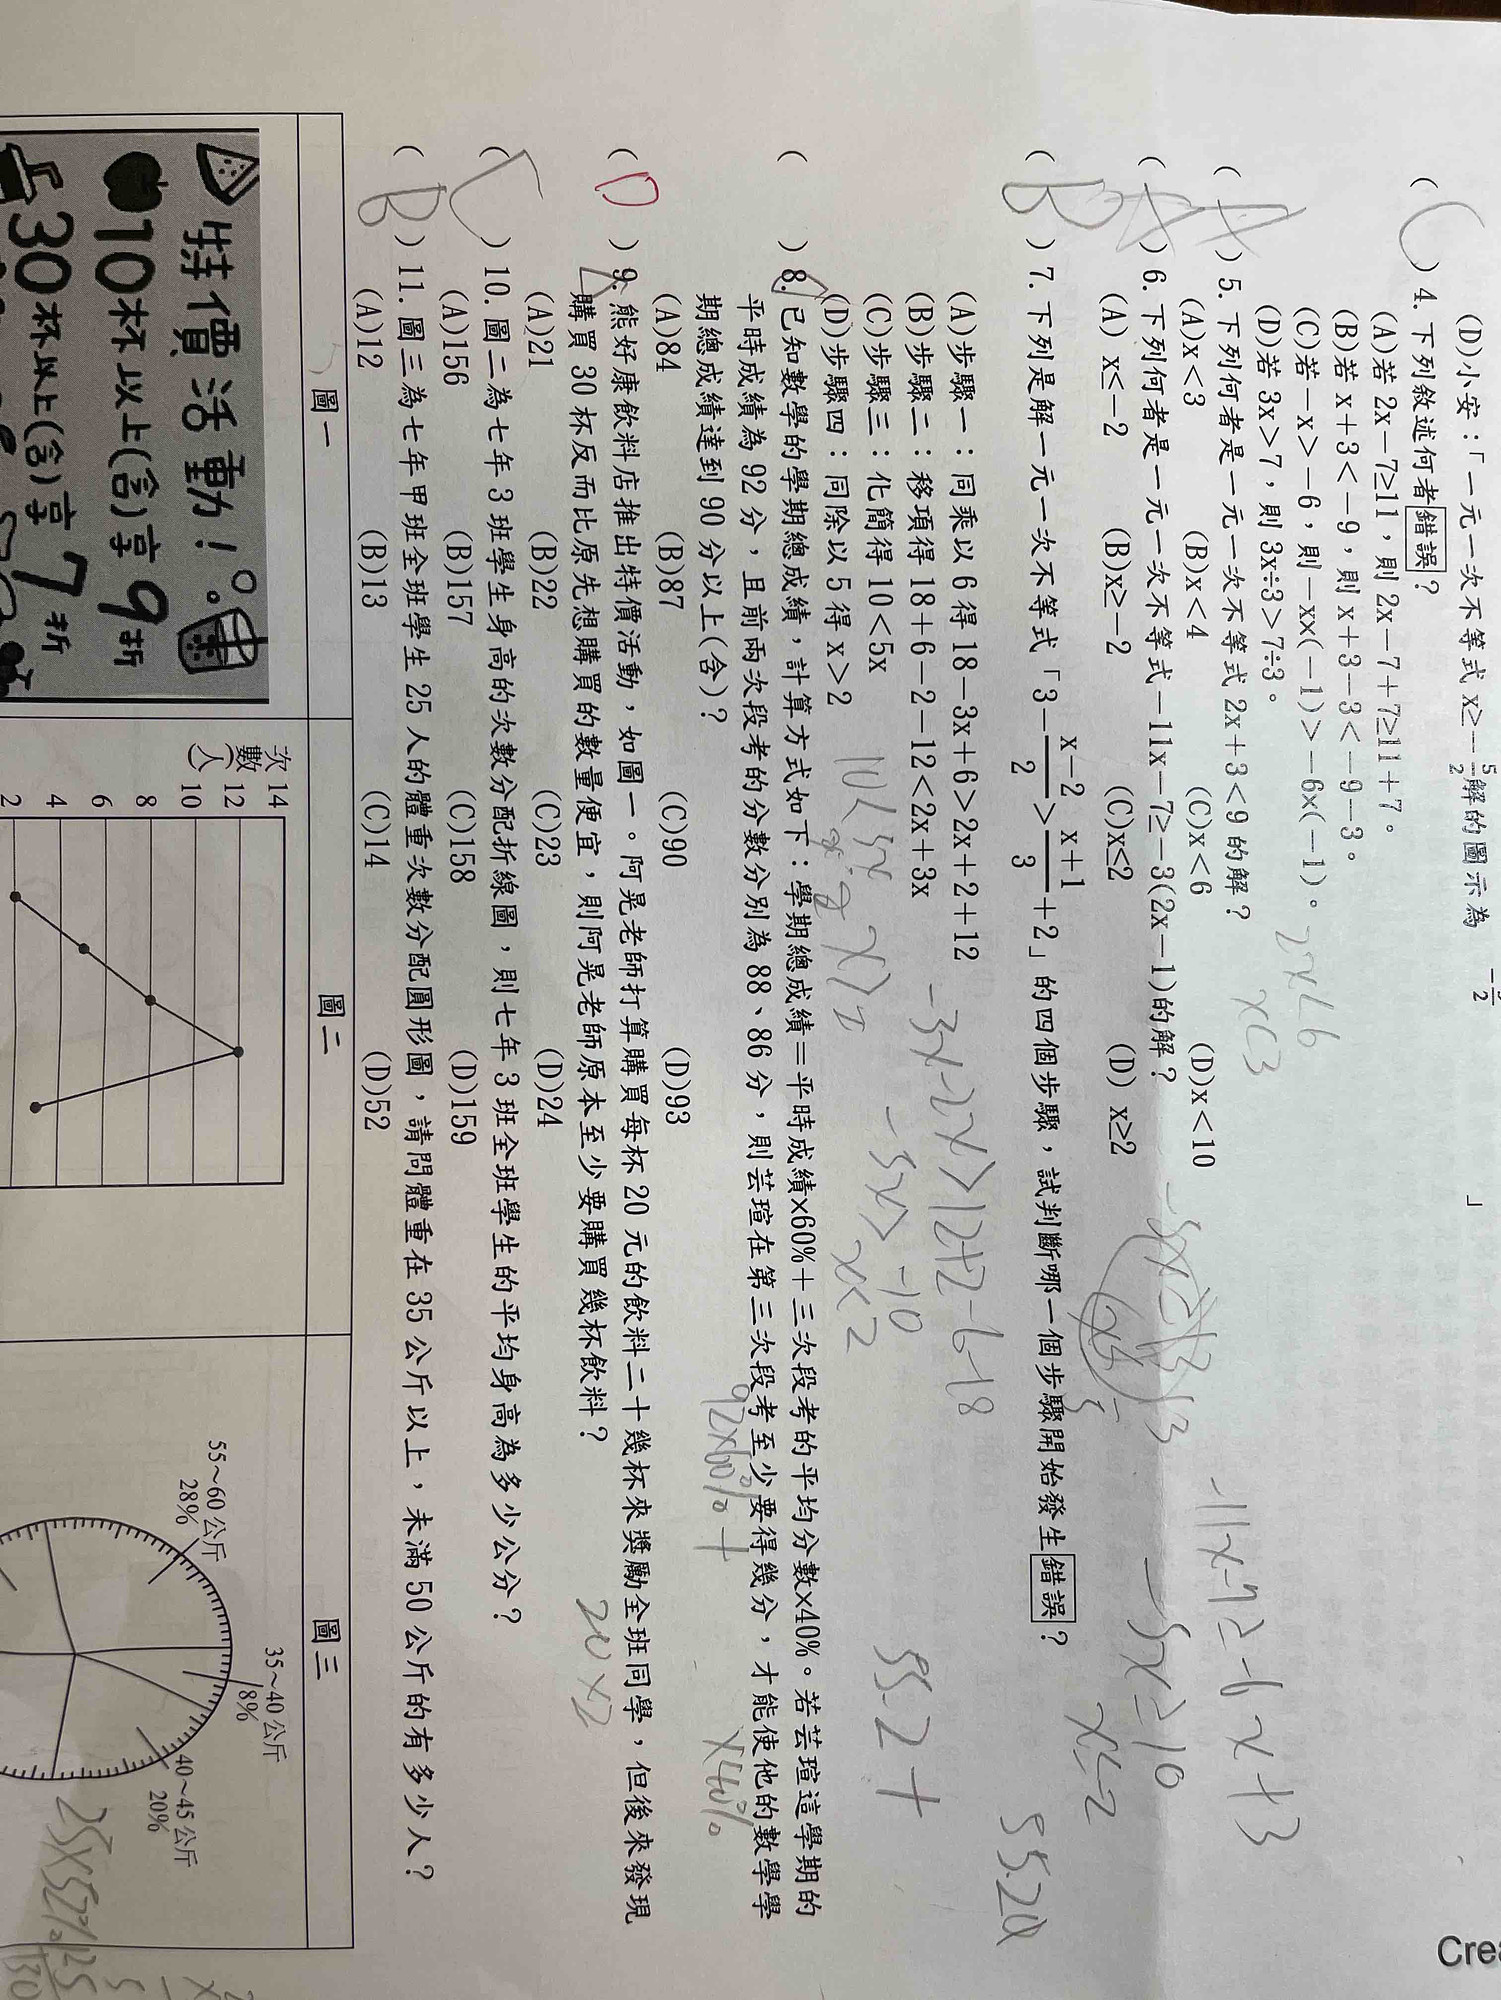 (D)小安：「一元一次不等式 x≥－5/2解的圖示為 」
－5/2
( C ) 4. 下列敘述何者錯誤？
(A)若 2x－7≥11，則 2x－7＋7≥11＋7。
(B)若 x＋3＜－9，則 x＋3－3＜－9－3。
(C)若－x＞－6，則－x×(－1)＞－6×(－1)。
(D)若 3x＞7，則 3x÷3＞7÷3。
2x<6
x<3
( A ) 5. 下列何者是一元一次不等式 2x＋3＜9 的解？
(A)x＜3 (B)x＜4 (C)x＜6 (D)x＜10
( A ) 6. 下列何者是一元一次不等式－11x－7≥－3(2x－1)的解？
-11x-7≥-6x+3
-5x≥10
x≤-2
(A) x≤－2 (B)x≥－2 (C)x≤2 (D) x≥2
( B ) 7. 下列是解一元一次不等式「3－(x－2)/2＞(x＋1)/3＋2」的四個步驟，試判斷哪一個步驟開始發生錯誤？
(A)步驟一：同乘以 6 得 18－3x＋6＞2x＋2＋12
(B)步驟二：移項得 18＋6－2－12＜2x＋3x
(C)步驟三：化簡得 10＜5x
(D)步驟四：同除以 5 得 x＞2
-3x-2x>12+2-6-18
-5x>-10
x<2
10<5x
x>2
55.2+
55.20
( ) 8. 已知數學的學期總成績，計算方式如下：學期總成績＝平時成績×60%＋三次段考的平均分數×40%。若芸瑄這學期的
平時成績為 92 分，且前兩次段考的分數分別為 88、86 分，則芸瑄在第三次段考至少要得幾分，才能使他的數學學
期總成績達到 90 分以上(含)？
92×60%+
×40%
(A)84 (B)87 (C)90 (D)93
( D ) 9. 熊好康飲料店推出特價活動，如圖一。阿晃老師打算購買每杯 20 元的飲料二十幾杯來獎勵全班同學，但後來發現
購買 30 杯反而比原先想購買的數量便宜，則阿晃老師原本至少要購買幾杯飲料？
20×2
(A)21 (B)22 (C)23 (D)24
( C ) 10. 圖二為七年 3 班學生身高的次數分配折線圖，則七年 3 班全班學生的平均身高為多少公分？
(A)156 (B)157 (C)158 (D)159
( B ) 11. 圖三為七年甲班全班學生 25 人的體重次數分配圓形圖，請問體重在 35 公斤以上，未滿 50 公斤的有多少人？
(A)12 (B)13 (C)14 (D)52
圖一 圖二 圖三
特價活動！
10杯以上(含)享9折
30杯以上(含)享7折
次數(人)
14
12
10
8
6
4
2
55～60 公斤
28%
35～40 公斤
8%
40～45 公斤
20%
25×52%
Crea